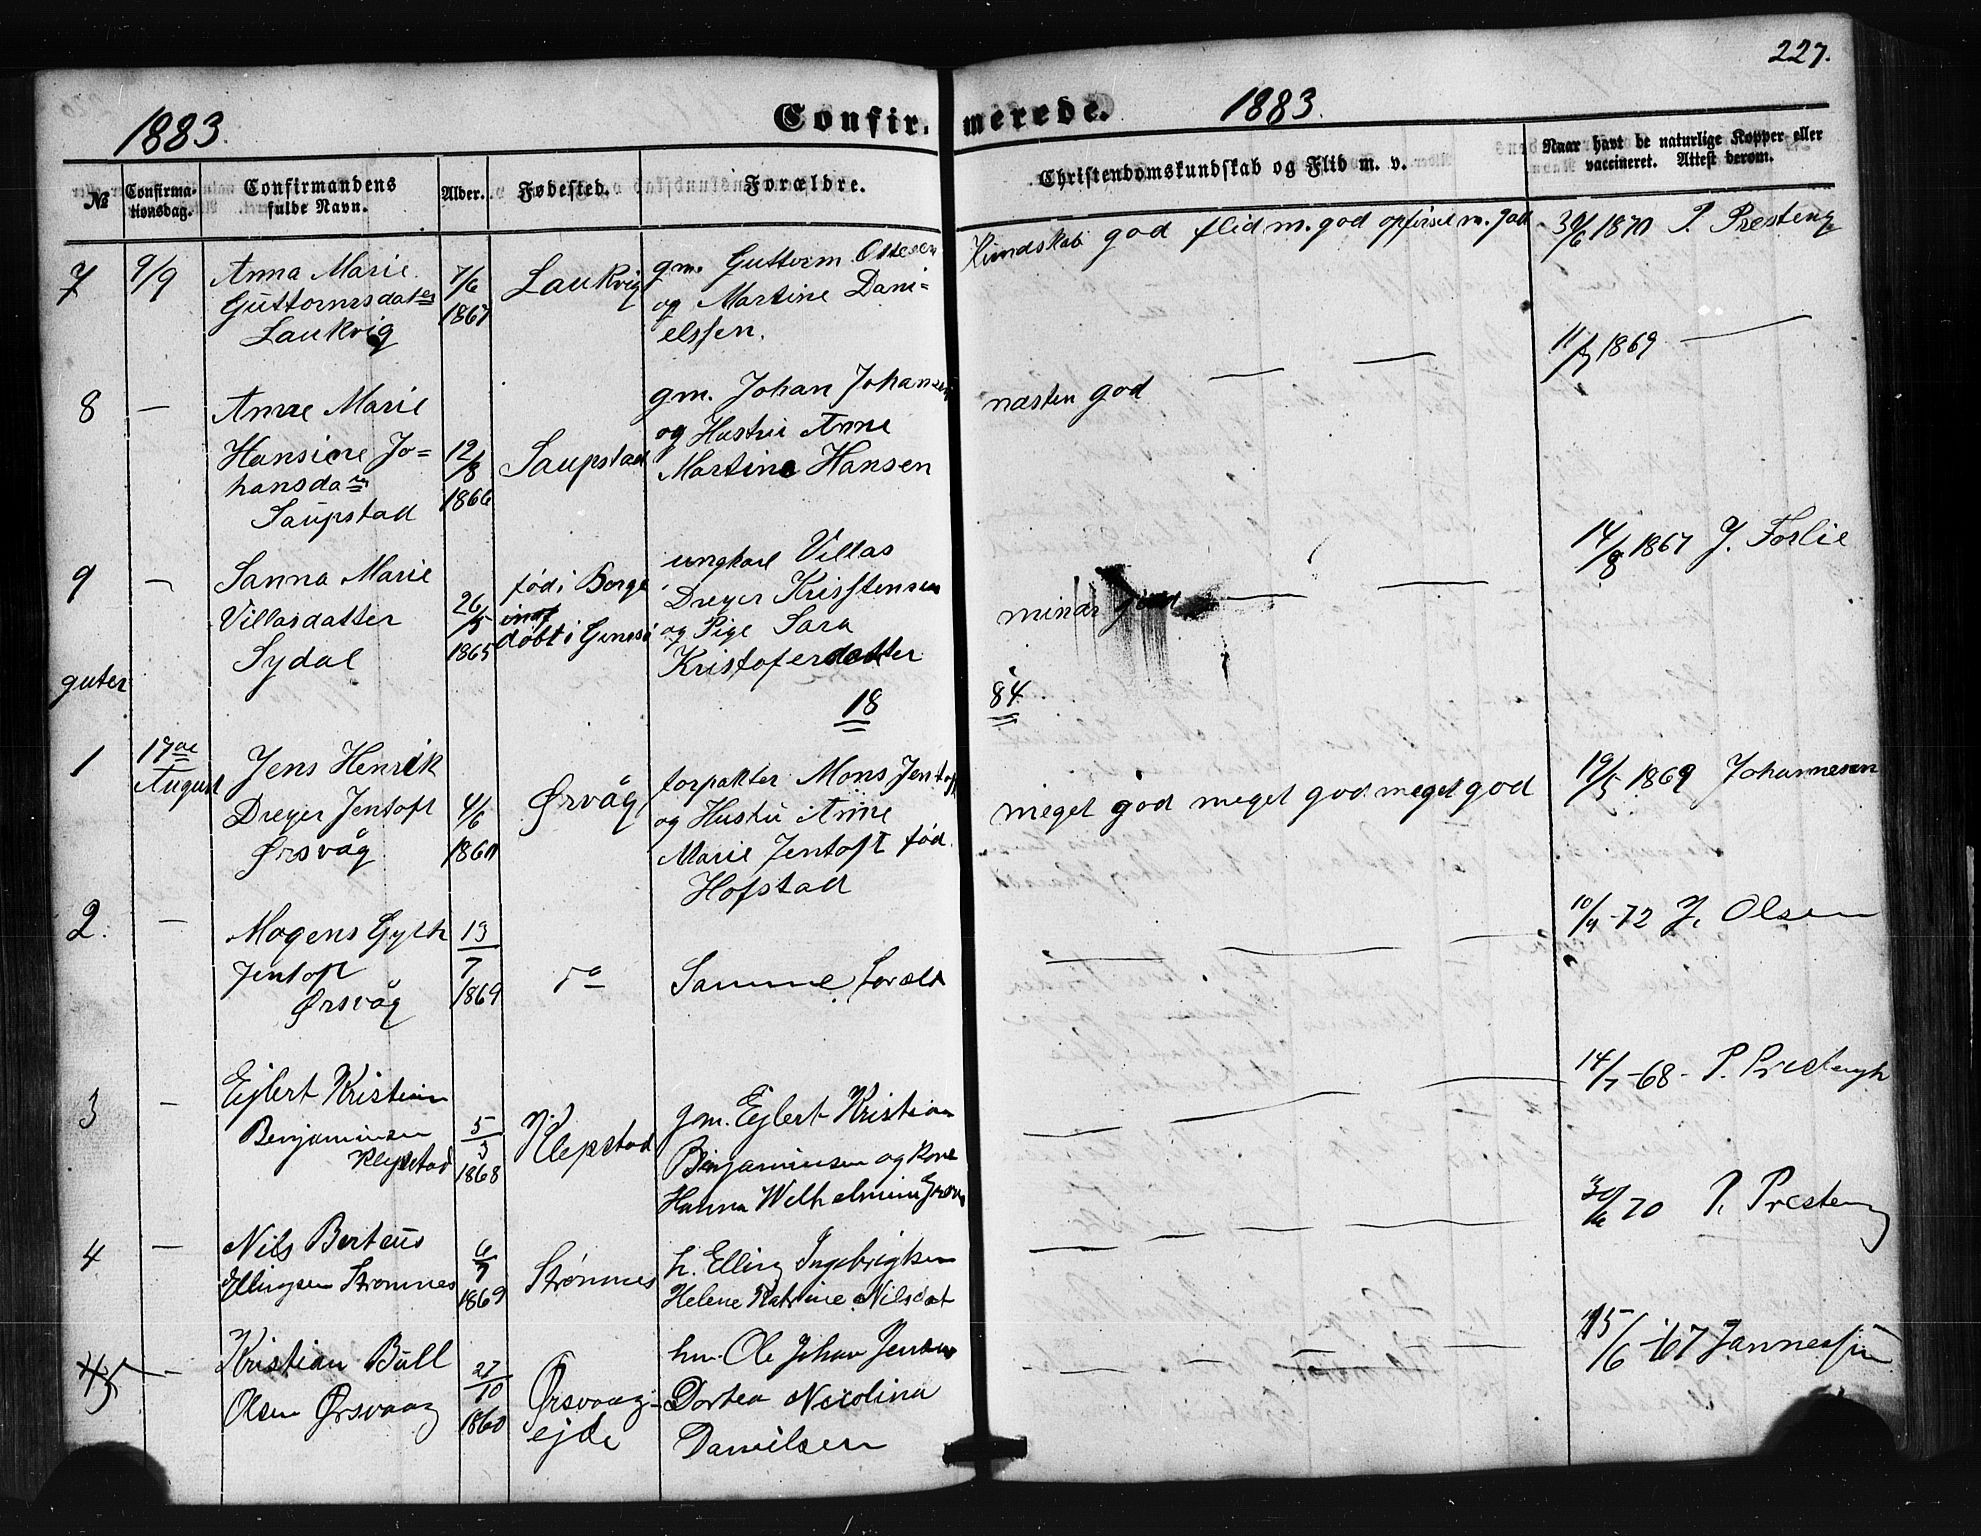 227.
1883. Confirmerede. 1883.
№ Confirmationsdag. Confirmandens fulde Navn. Alder. Fødested. Forældre. Christendomskundskab og Flid m. v. Naar havt de naturlige Kopper eller vaccineret. Attest derom.
7 9/9 Anna Marie 7/6 Laukvig gm. Guttorm Ottesen Kundskab god flid m. god opførsel m. god 30/6 1870 P. Presteng
Guttormsdater 1867 og Martine Dani=
Laukvig elssen.
8 — Anne Marie gm. Johan Johansen næsten god — — 11/7 1869 —
Hansine Jo= 12/8 Saupstad og Hustru Anne
hansda 1866 Martine Hansen
Saupstad
9 — Sanna Marie 26/5 fød i Borge ungkarl Villas mindr god — — 14/8 1867 J. Forlie
Villasdatter 1865 døbt i Gimsø Dreyer Kristensen
Sydal og Pige Sara
Kristoferdatter
guter
18 84
1 17de August Jens Henrik 4/6 Ørvåg forpakter Mons Jentoft meget god meget god meget god 19/5 1869 Johannesen
Dreyer Jentoft og Hustru Anne
Ørsvåg Marie Jentoft fød
Hofstad
2. — Mogens Gyth 13/7 do Samme foræld — — — 10/9 -72 J. Olsen
Jentoft 1869
Ørsvåg
3 — Ejlert Kristian 5/3 Klepstad gm. Ejlert Kristian — — — 14/7 -68- P. Presteng
Benjaminsen 1868 Benjaminsen og Kone
Klepstad Hanna Wilhelmine
4 — Nils Berteus 6/7 Strømnes h. Elling Ingebrigtsen — — — 30/6 70 P. Presteng
Ellingsen Strømnes 1869 Helene Katrine Nilsdat
5 — Kristian Bull 27/10 Ørsvaag- hm. Ole Johan Jensen — — — — 15/6 -67 Jannessen
Olsen Ørsvaag 1860 ejde Dortea Nicolina
Danielsen